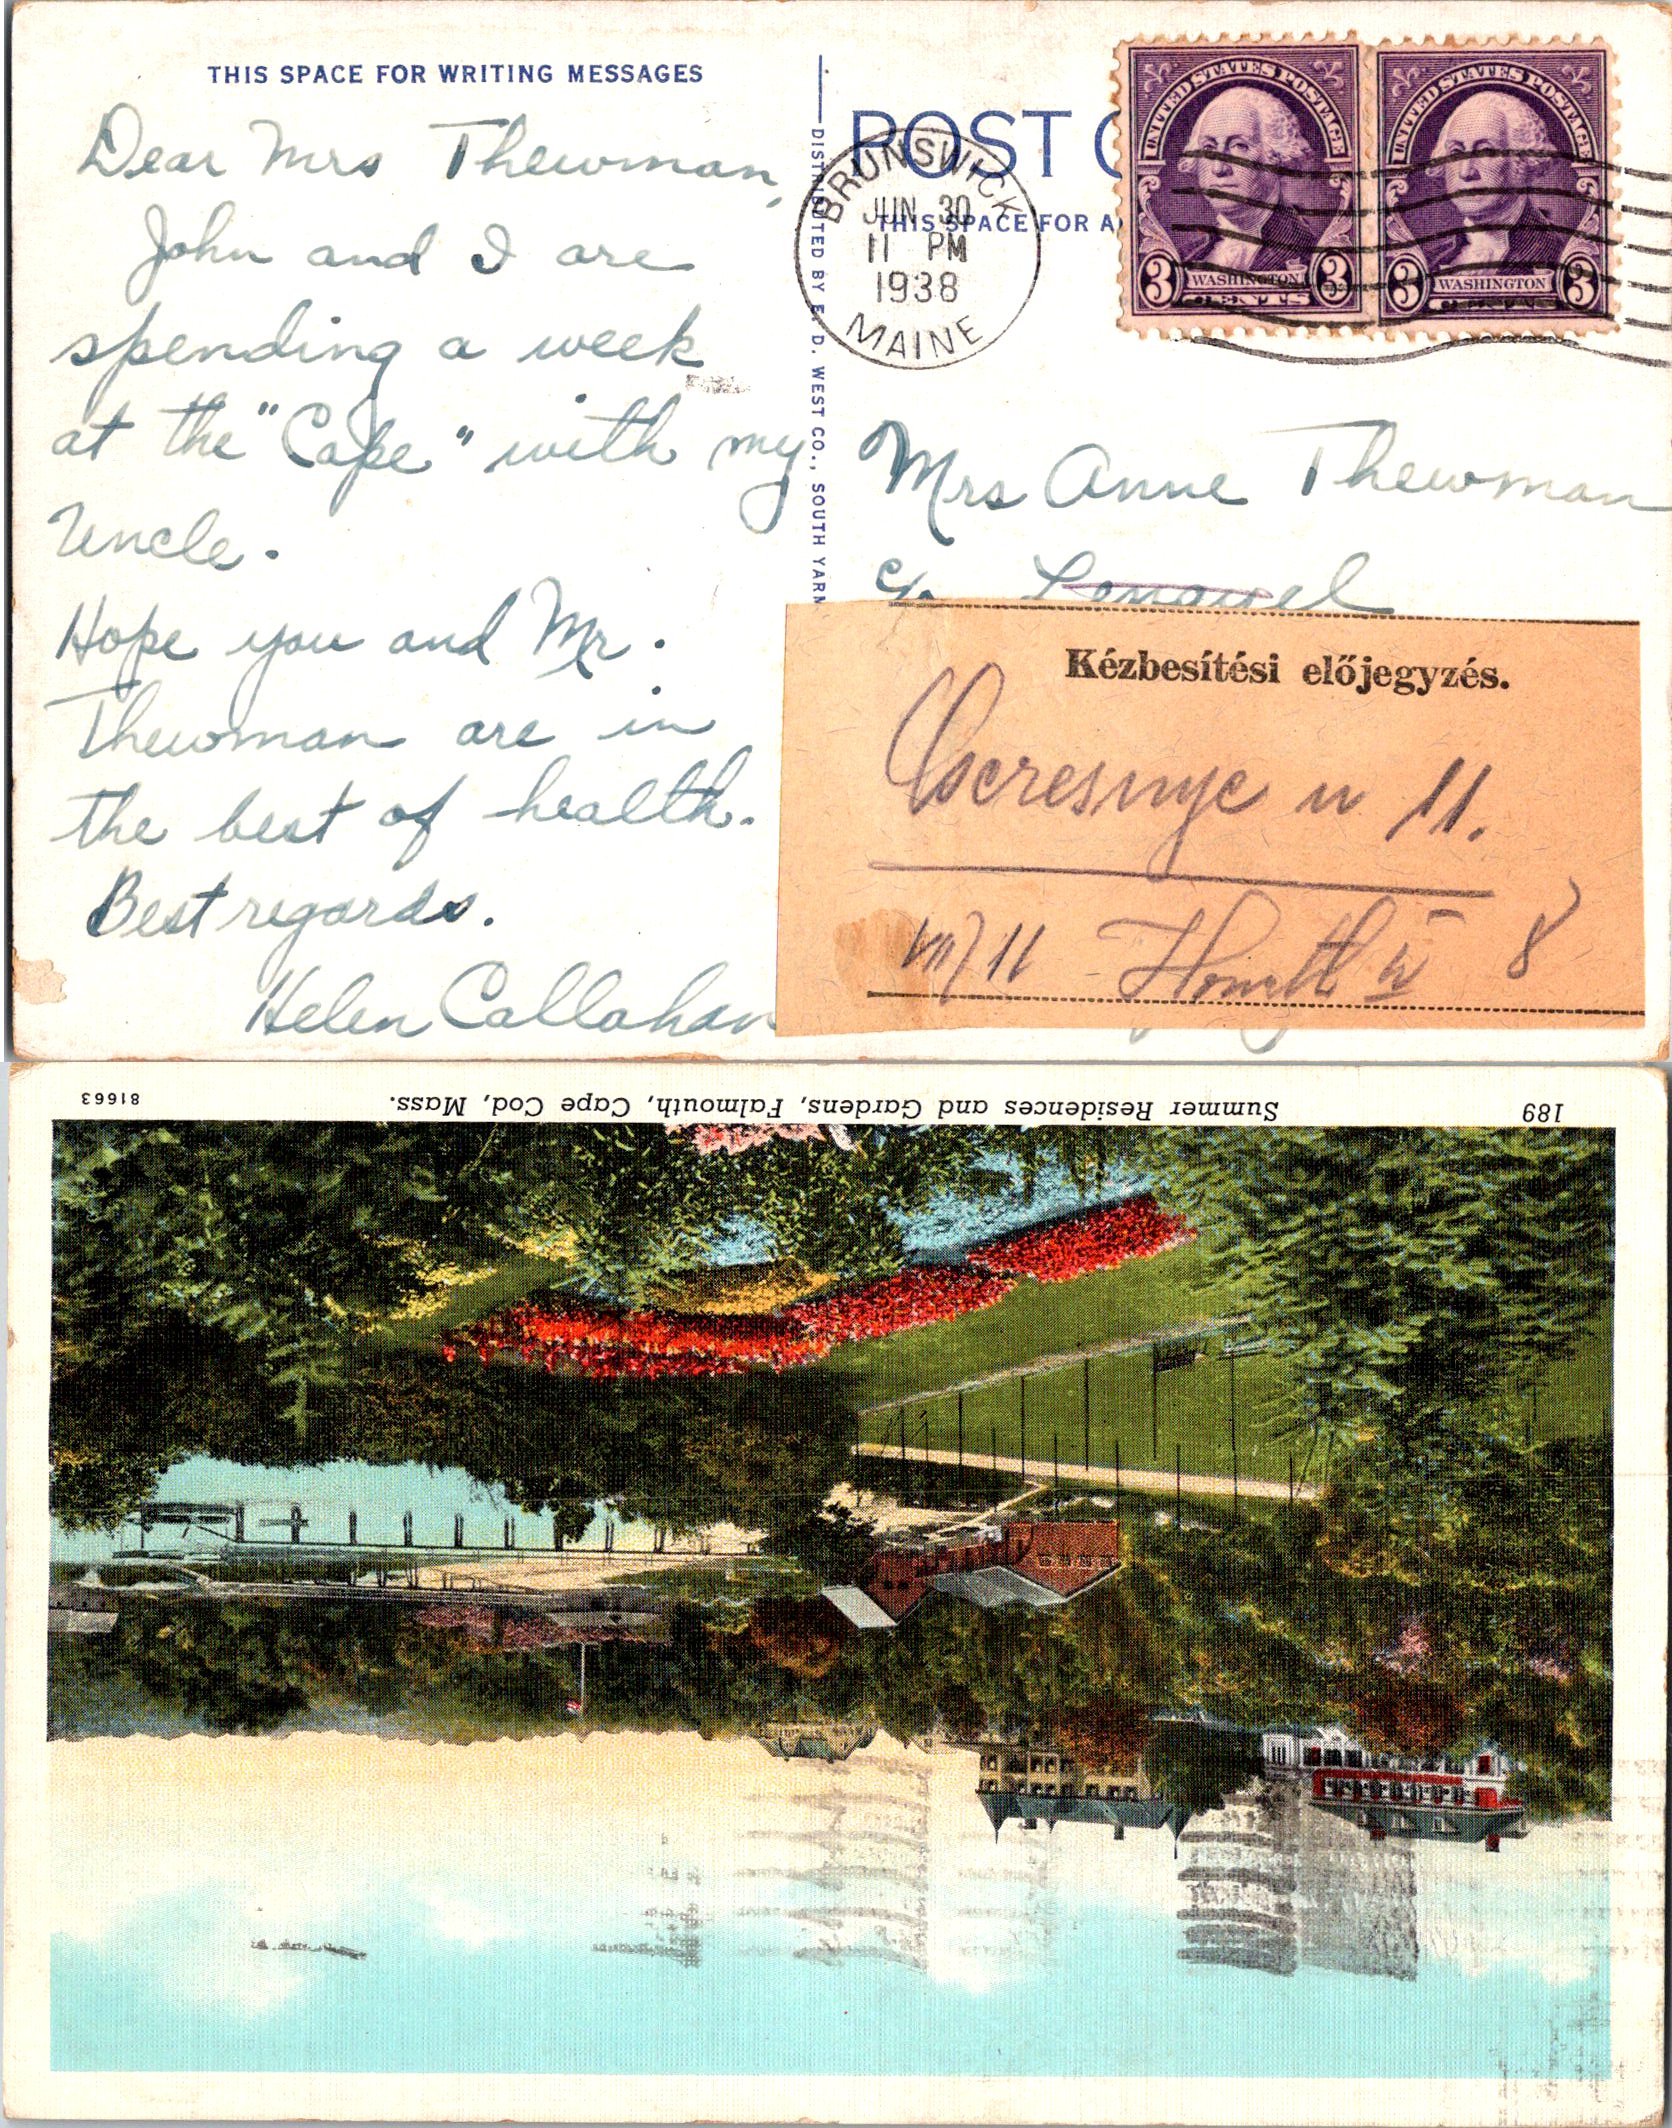 THIS SPACE FOR WRITING MESSAGES
Dear Mrs Thewman,
John and I are
spending a week
at the "Cape" with my
Uncle.
Hope you and Mr.
Thewman are in
the best of health.
Best regards.
Helen Callahan
DISTRIBUTED BY E. D. WEST CO., SOUTH YARM
POST C
THIS SPACE FOR A
BRUNSWICK
JUN 30
11 PM
1938
MAINE
UNITED STATES POSTAGE
3 WASHINGTON 3
CENTS
UNITED STATES POSTAGE
3 WASHINGTON 3
CENTS
Mrs Anne Thewman
c/o
Kézbesítési előjegyzés.
Cseresnye u 11.
VII/11 8
189 Summer Residences and Gardens, Falmouth, Cape Cod, Mass. 81663